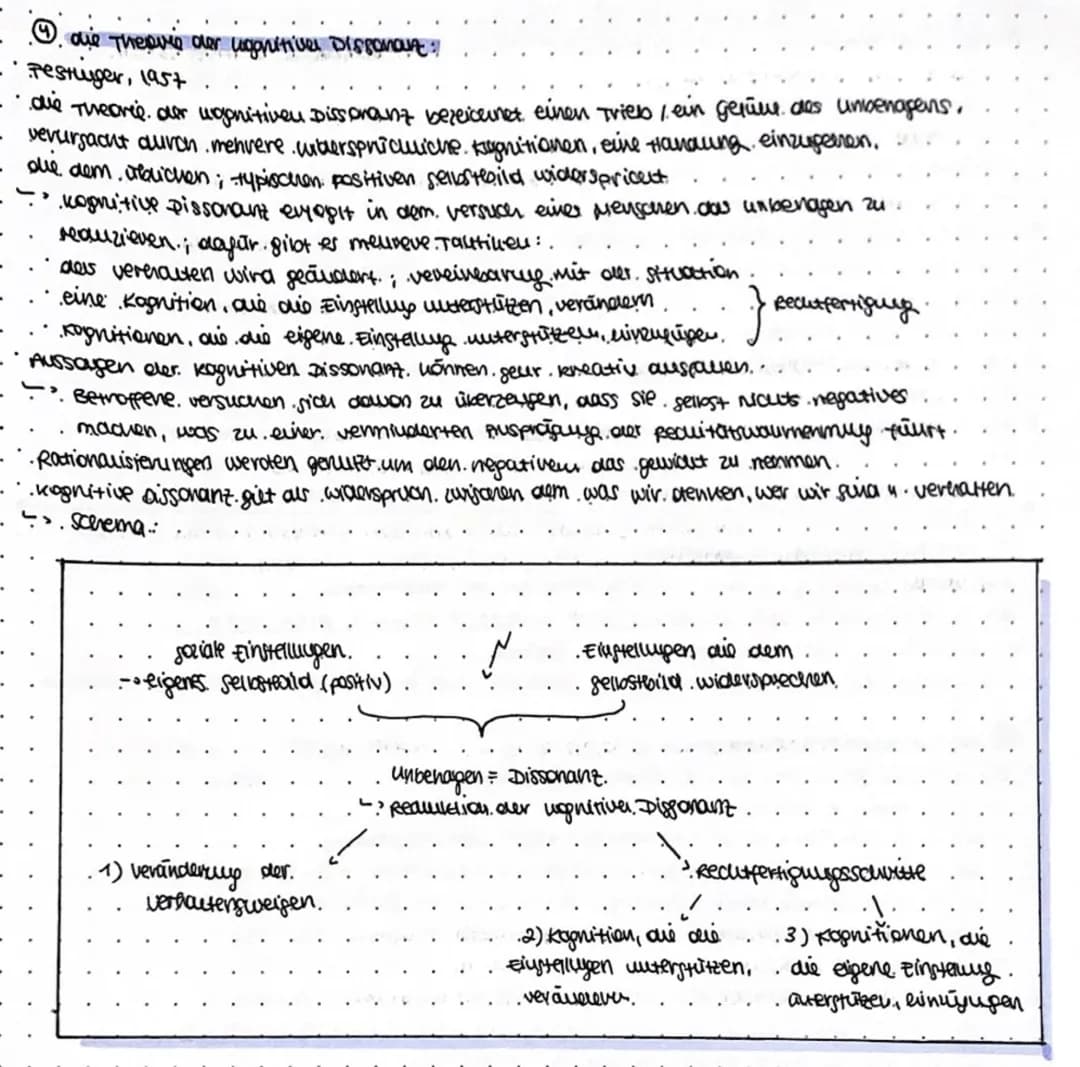 ④. die Theorie der kognitiven Dissonanz:
Festinger, 1957
die Theorie der kognitiven Dissonanz bezeichnet einen Trieb / ein Gefühl des Unbehagens,
verursacht durch mehrere widersprüchliche Kognitionen, eine Handlung einzugehen,
die dem üblichen; typischen positiven Selbstbild widerspricht
↳ kognitive Dissonanz ergibt in dem Versuch eines Menschen das Unbehagen zu
reduzieren; dafür gibt es mehrere Taktiken:
das Verhalten wird geändert; Vereinbarung mit der Situation
eine Kognition, die die Einstellung unterstützen, verändern
Kognitionen, die die eigene Einstellung unterstützen, hinzufügen
} Rechtfertigung
Aussagen der kognitiven Dissonanz können sehr kreativ ausfallen.
↳ Betroffene versuchen sich davon zu überzeugen, dass sie selbst nichts negatives
machen, was zu einer verminderten Ausprägung der Realitätswahrnehmung führt.
Rationalisierungen werden genutzt um den negativem das Gewicht zu nehmen.
kognitive Dissonanz gilt als Widerspruch zwischen dem was wir denken, wer wir sind u. verhalten.
↳ Schema:
soziale Einstellungen
→ eigenes Selbstbild (positiv)
Einstellungen die dem
Selbstbild widersprechen
Unbehagen = Dissonanz
↳ Reduktion der kognitiven Dissonanz
1) Veränderung der
Verhaltensweisen
Rechtfertigungsschritte
2) Kognition, die die
Einstellungen unterstützen,
verändern
3) Kognitionen, die
die eigene Einstellung
unterstützen, hinzufügen